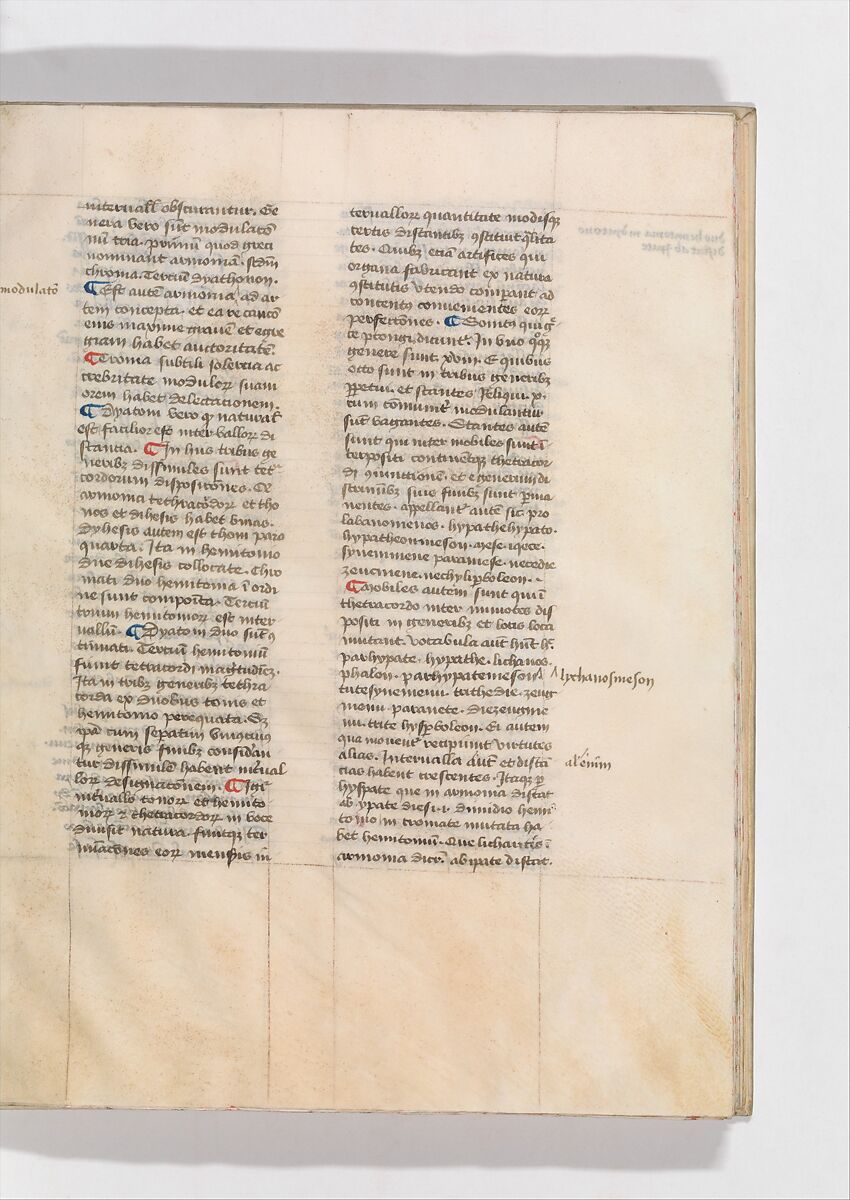 interuall obscurantur. Ge
nera vero sūt modulatō
nū tria. primū quod greci
nominant armoniā. scdm̄
chroma. Terciū dyathonon.
modulatō
Est autē armonia ad ar
tem concepta. et ea re cantō
eius maxime grauē et egre
giam habet auctoritatē.
Croma subtili solercia ac
crebritate modulor̄ suaui
orem habet delectationem.
Dyatoni vero qꝫ natural
est facilior est interuallor̄ di
stancia. In hiis tribus ge
neribꝫ dissimiles sunt tet
cordorum disposicōnes.
armonici tethracordor̄ et tho
nos et dihesis habet binas.
Dyhesis autem est thoni pars
quarta. Ita in hemitonio
due dihesis collocate. Chro
mati duo hemitonia ī ordi
ne sunt composita. Terciū
trium hemitonior̄ est inter
uallū. Dyatoni duo sūt 9
tinuati. Terciū hemitoniū
finit tetracordi magtudiēꝫ.
Ita in tribꝫ generibꝫ tethra
corda ex duobus tonis et
hemitonio perequata. Sꝫ
ipā cum sepatim vniꝰcuiꝰ
qꝫ generis finibꝫ considāan
tur dissimilē habent interual
lor̄ designacōnem. Igit
interuallo tonor̄ et hemito
nior̄ ⁊ thetracordor̄ in voce
diuisit natura finitqꝫ ter
miacōnes eor̄ mensuris in
teruallor̄ quantitate modisqꝫ
certis distantibꝫ 9stituit q̄lita
tes. Quibꝫ eciā artifices qui
organa fabricant ex natura
9stitutis vtendo comparant ad
concentꝰ conuenientes eor̄
perfectōnes. Sonitꝰ qui g̃
ce ptongi dicunt. In vno qͦqꝫ
genere sunt xviii. E quibus
octo sunt in tribus generibꝫ
ꝑpetui et stantes. Reliqui x.
cum cōmunit modulantur
sūt vagantes. Stantes autē
sunt qui inter mobiles sunt ī
terpositi continentqꝫ thetracor
di 9iunctionē. et e generum di
scriminibꝫ suis finibꝫ sunt ꝑma
nentes. appellant autē sic. pro
labanomenos. hypathehypato.
hypatheonmeson. mese. iqece.
synemmene paramese. necedie
zeucmene. nechyliꝑboleon.
Mobiles autem sunt qui ī
thetracordo inter inmotos dis
positi in generibꝫ et locis loca
mutant. vocabula aut hūt h̄.
parhypate. hypathe. lichanos.
phalon. parhypatemeson
lychanosmeson
tritesynemeni. trithedie. zeug
meni. paranete. diezeugme
ni. trite hyꝑboleon. Ei autem
qua mouent recipiunt virtutes
alias. Interualla aut et distā
al' enim
cias habent crescentes. Itaqꝫ ꝑ
hyspate que in armonia distat
ab ypate diesi. r dimidio hemi
tonio in cromate mutata ha
bet hemitoniū. Que lichanos ī
armonia dicr̄. ab ipate distat.